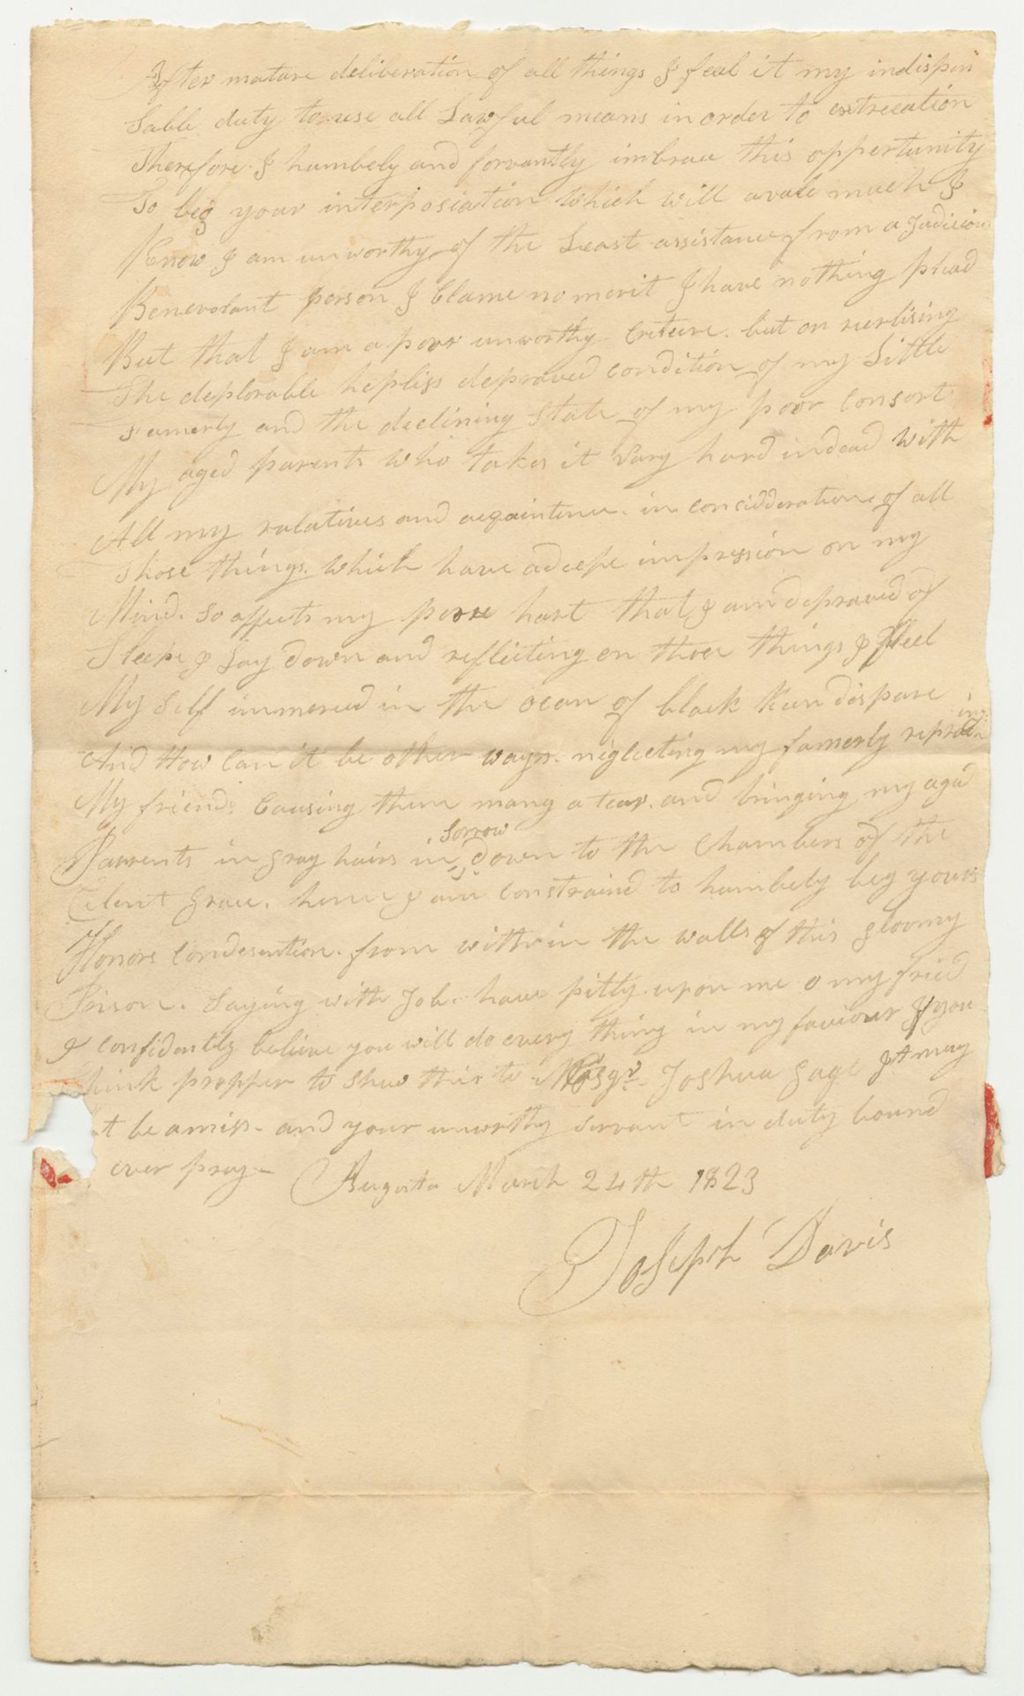 After mature deliberation of all things I feel it my indispin
sable duty to use all Lawful means in order to extrecation
Therefore I humbely and forvantly imbrau this oppertunity
To beg your interposiation which will avale much I
Know I am unworthy of the Least assistance from a Judicious
Benevolant person I Clame no merit I have nothing plead
But that I am a poor unworthy Criture. but on
The deplorable depraved condition of my Little
famerly and the declining State of my poor Consort
My aged parents who takes it Vary hard indead with
All my ralatives and in considderation of all
Those things. which have a deepe impression on my
Mind. So affects my poore hart that I am depraved of
Sleepe I Lay down and reflecting on thoes things I feel
My Self immersed in the ocan of black dispare
And How Can it be other ways. neglecting my famerly
My friends Causing them many a tear. and bringing my aged
Parrents in gray hairs in Sorrow down to the Chambers of the
Cilent Grave. hence I am Constraind to humbely beg yours
Honors Condesention. from within the walls of this gloomy
Prison. Saying with Job. have pitty upon me o my fried
I confidantly believe you will do every thing in my faviour if you
think propper to Shew this to Esqr. Joshua Gage it may
not be amiss and your unworthy Servant in duty bound
ever pray
Augusta March 24th 1823
Joseph Davis